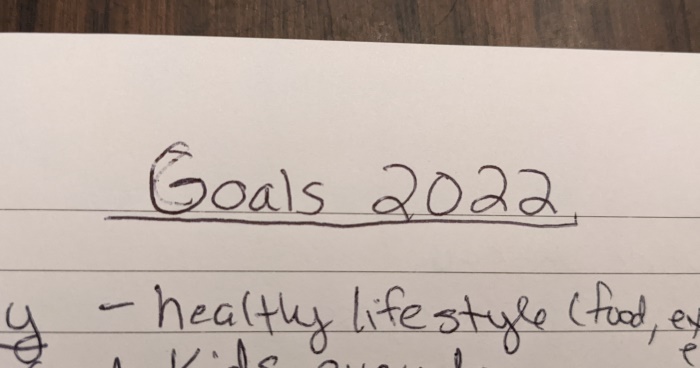 Goals 2022
y - healtly lifestyle (food, ex
Kids